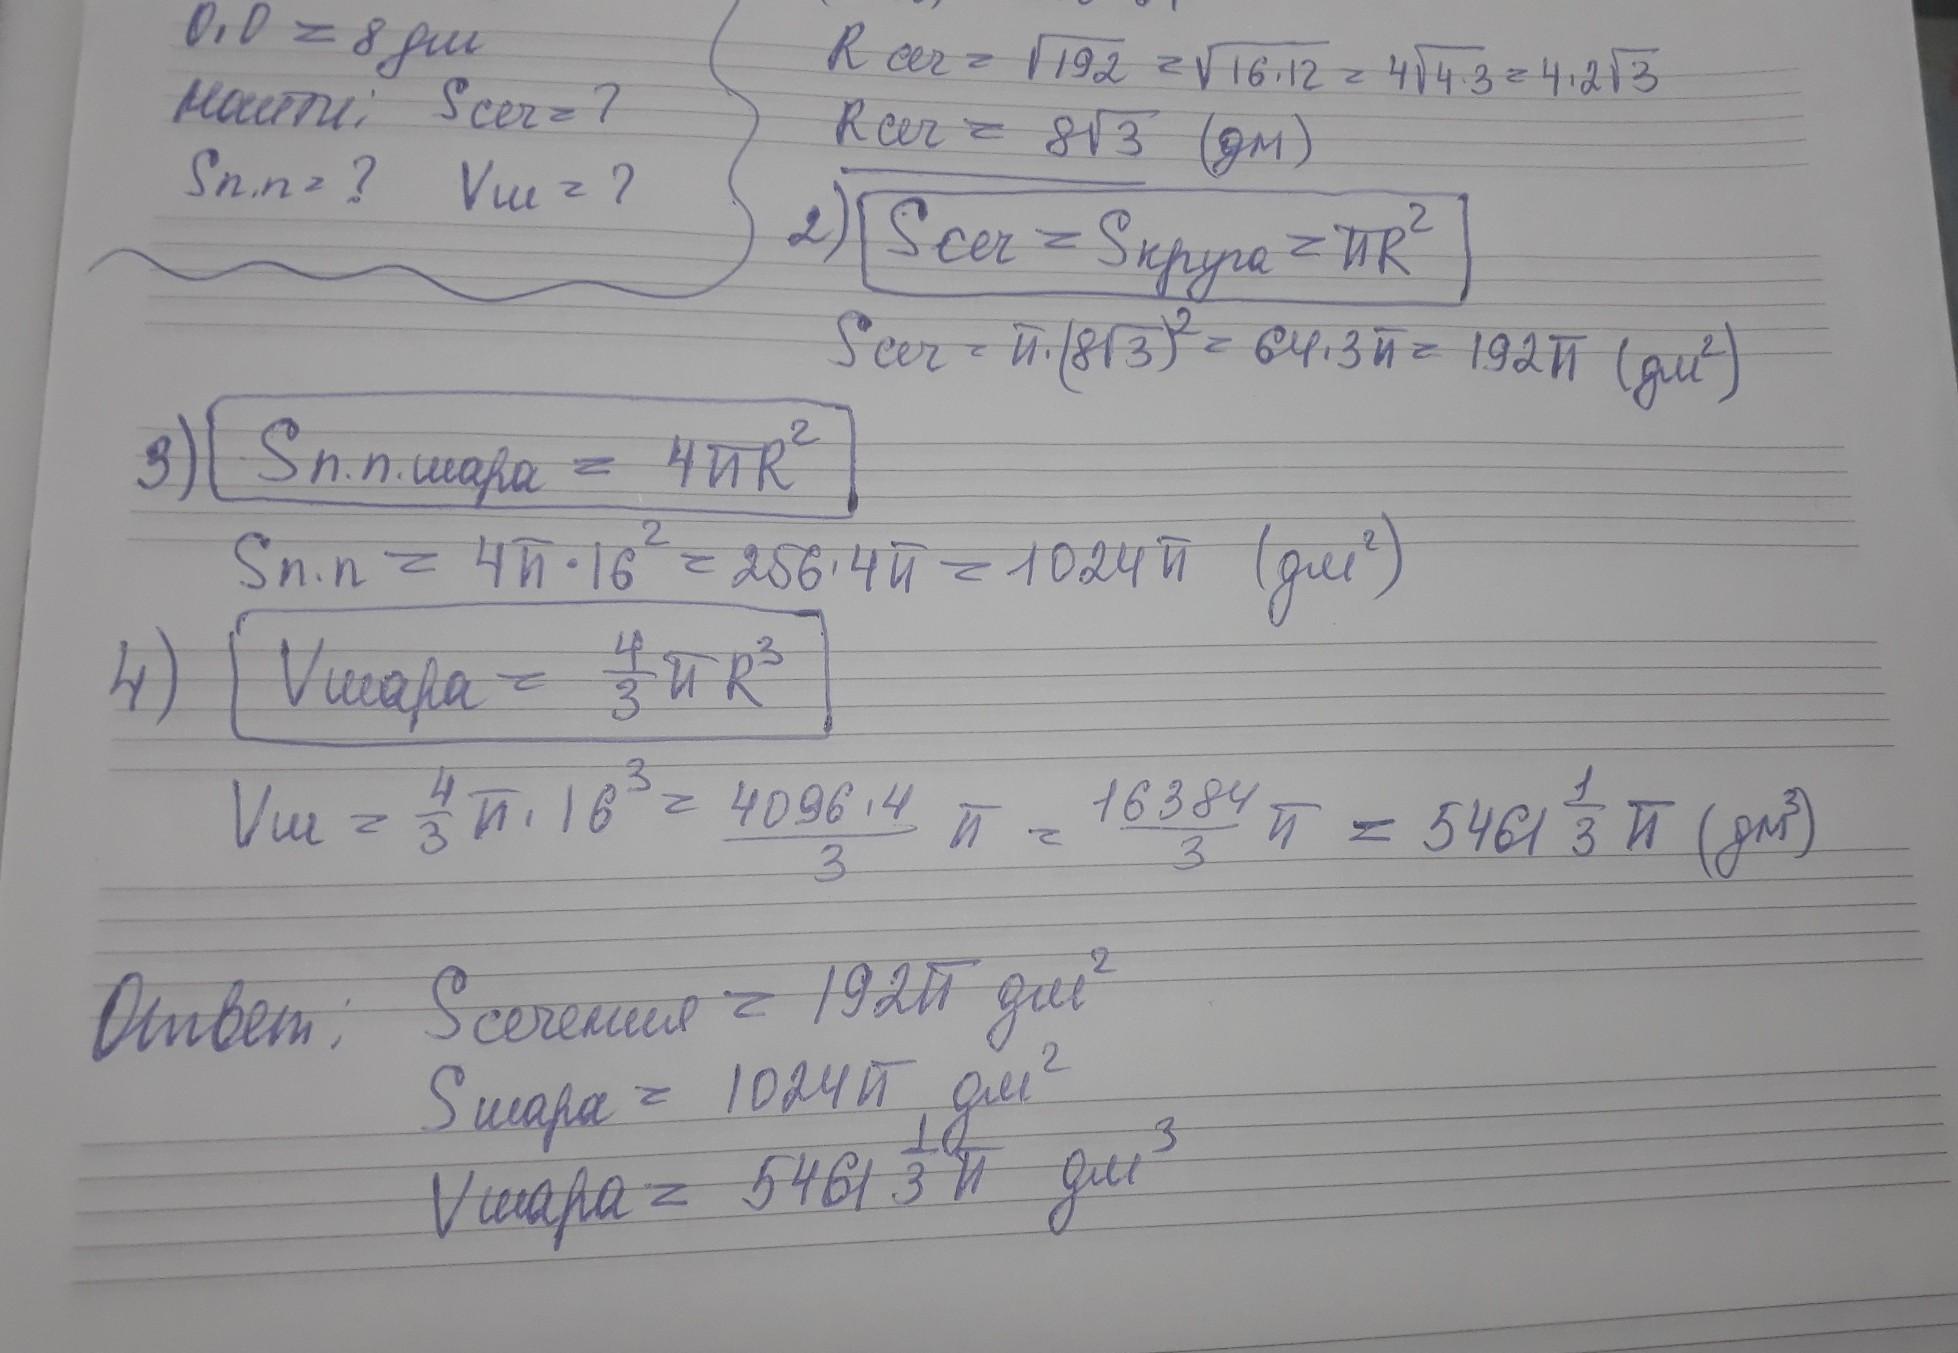 O₁O = 8 дм
Найти: Sсеч = ?
Sп.п = ? Vш = ?
Rсеч = √192 = √16·12 = 4√4·3 = 4·2√3
Rсеч = 8√3 (дм)
2) Sсеч = Sкруга = πR²
Sсеч = π·(8√3)² = 64·3π = 192π (дм²)
3) Sп.п.шара = 4πR²
Sп.п = 4π·16² = 256·4π = 1024π (дм²)
4) Vшара = 4/3 πR³
Vш = 4/3 π·16³ = 4096·4/3 π = 16384/3 π = 5461 1/3 π (дм³)
Ответ: Sсечения = 192π дм²
Sшара = 1024π дм²
Vшара = 5461 1/3 π дм³